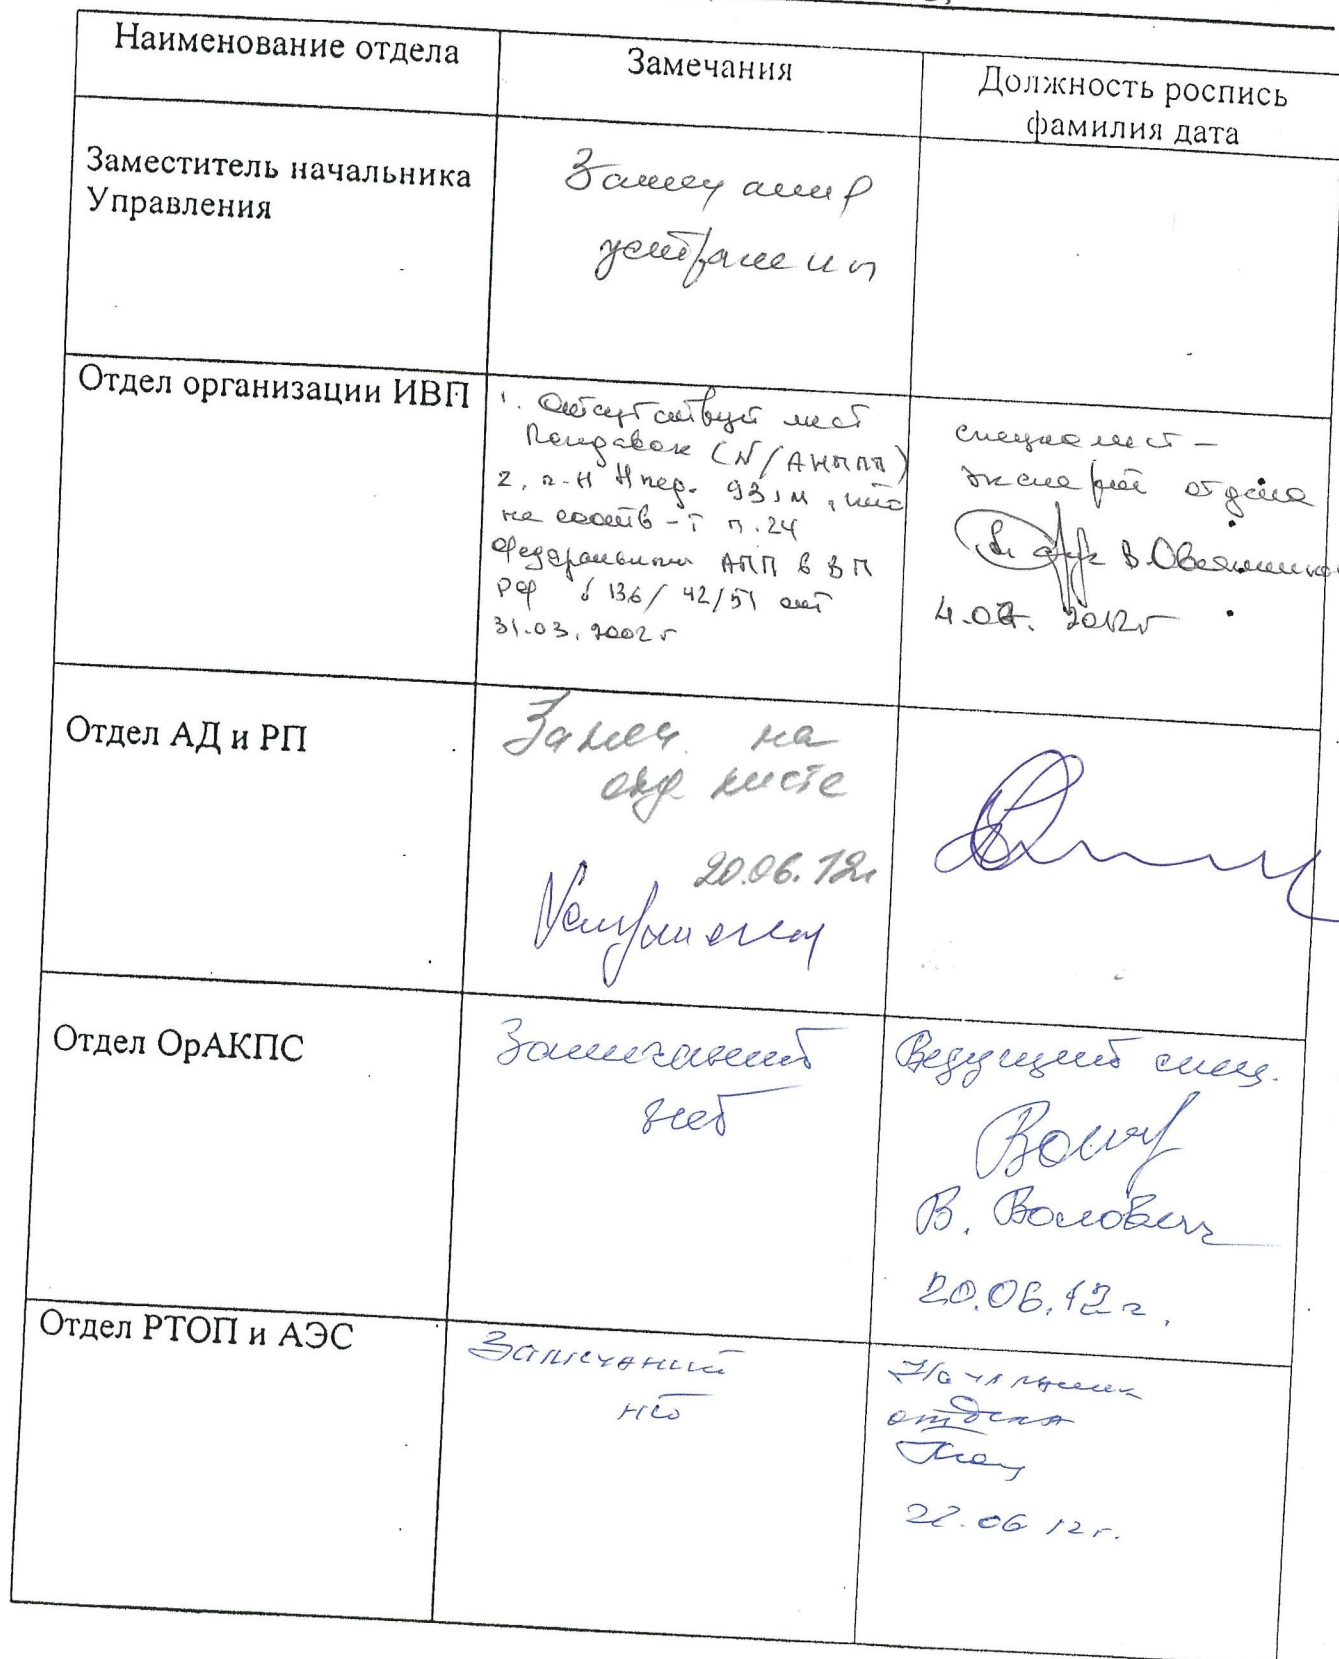 Наименование отдела
Замечания
Должность роспись
фамилия дата
Заместитель начальника
Управления
Замечания
устранены
Отдел организации ИВП
1. Отсутствует лист
(N/АНППП)
2. п-н Нпер. 931м, что
не соотв-т п.24
Федеральных АПП в ВП
РФ № 136/42/51 от
31.03.2002г
специалист-
эксперт отдела
В.Овсянников
4.07.2012г
Отдел АД и РП
Замеч. на
отд листе
20.06.12г
Отдел ОрАКПС
Замечаний
нет
Ведущий спец.
В. Волович
20.06.12г.
Отдел РТОП и АЭС
Замечаний
нет
Начальник
отдела
22.06 12г.